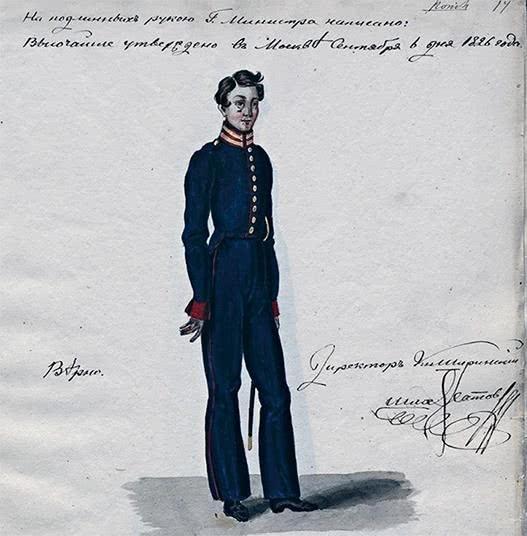 Копія 17
На подлинныхъ рукою Г. Министра написано:
Высочайше утверждено въ Москвѣ Сентября 6 дня 1826 года.
Вѣрно.
Директоръ Кн. Ширинскій
Шихматовъ